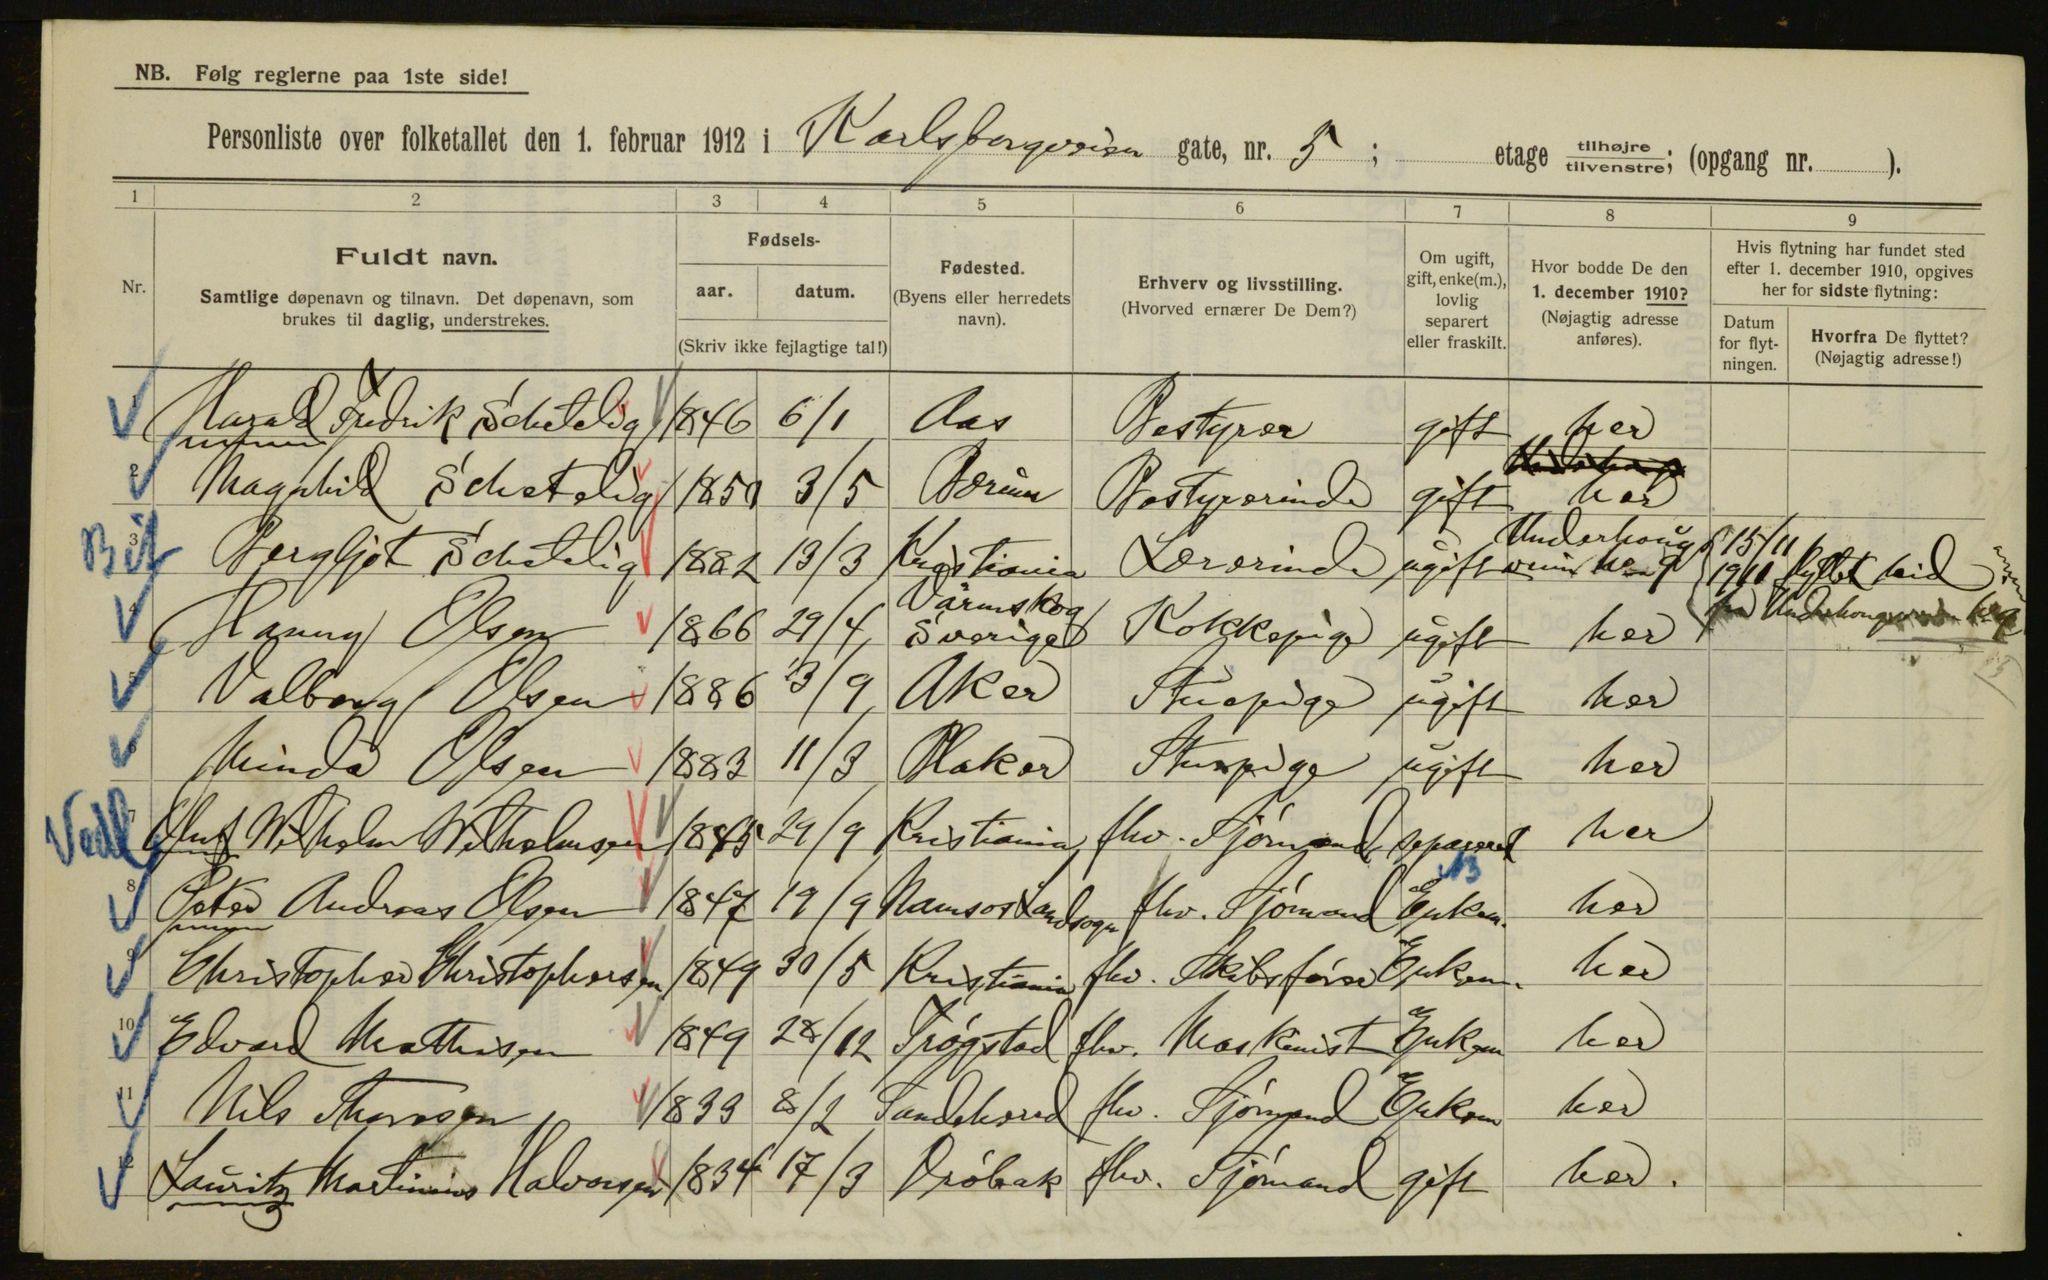 NB. Følg reglerne paa 1ste side!
Personliste over folketallet den 1. februar 1912 i Karlsborgveien gate, nr. 5 ; etage tilhøjre/tilvenstre; (opgang nr. ).
1 2 3 4 5 6 7 8 9
Nr.
Fuldt navn.
Samtlige døpenavn og tilnavn. Det døpenavn, som
brukes til daglig, understrekes.
Fødsels-
aar. datum.
(Skriv ikke fejlagtige tal!)
Fødested.
(Byens eller herredets
navn).
Erhverv og livsstilling.
(Hvorved ernærer De Dem?)
Om ugift,
gift, enke(m.),
lovlig
separert
eller fraskilt.
Hvor bodde De den
1. december 1910?
(Nøjagtig adresse
anføres).
Hvis flytning har fundet sted
efter 1. december 1910, opgives
her for sidste flytning:
Datum
for flyt-
ningen.
Hvorfra De flyttet?
(Nøjagtig adresse!)
1 Harald Fredrik Schetelig 1846 6/1 Aas Bestyrer gift her
2 Magnhild Schetelig 1850 3/5 Bærum Bestyrerinde gift her
Bif 3 Bergljot Schetelig 1882 13/3 Kristiania Lærerinde ugift Underhaugsveien 15/11 1911 flyttet hid fra
4 Hanny Olsen 1866 29/4 Värmskog Sverige Kokkepige ugift her
5 Valborg Olsen 1886 13/9 Aker Stuepige ugift her
6 Minda Olsen 1883 11/3 Blaker Stuepige ugift her
Vedl 7 Oluf Wilhelm Wilhelmsen 1845 29/9 Kristiania fhv. Sjømand separeret her
8 Peter Andreas Olsen 1847 19/9 Namsos Landsogn fhv. Sjömand Enkem. her
9 Christopher Christophersen 1849 30/5 Kristiania fhv. Skibsfører Enkem. her
10 Edvard Mathisen 1849 28/12 Trøgstad fhv. Maskinist Enkem her
11 Nils Thoresen 1833 8/2 Sandeherred fhv. Sjømand Enkem her
12 Lauritz Martinius Halvorsen 1834 17/3 Drøbak fhv. Sjömand gift her.